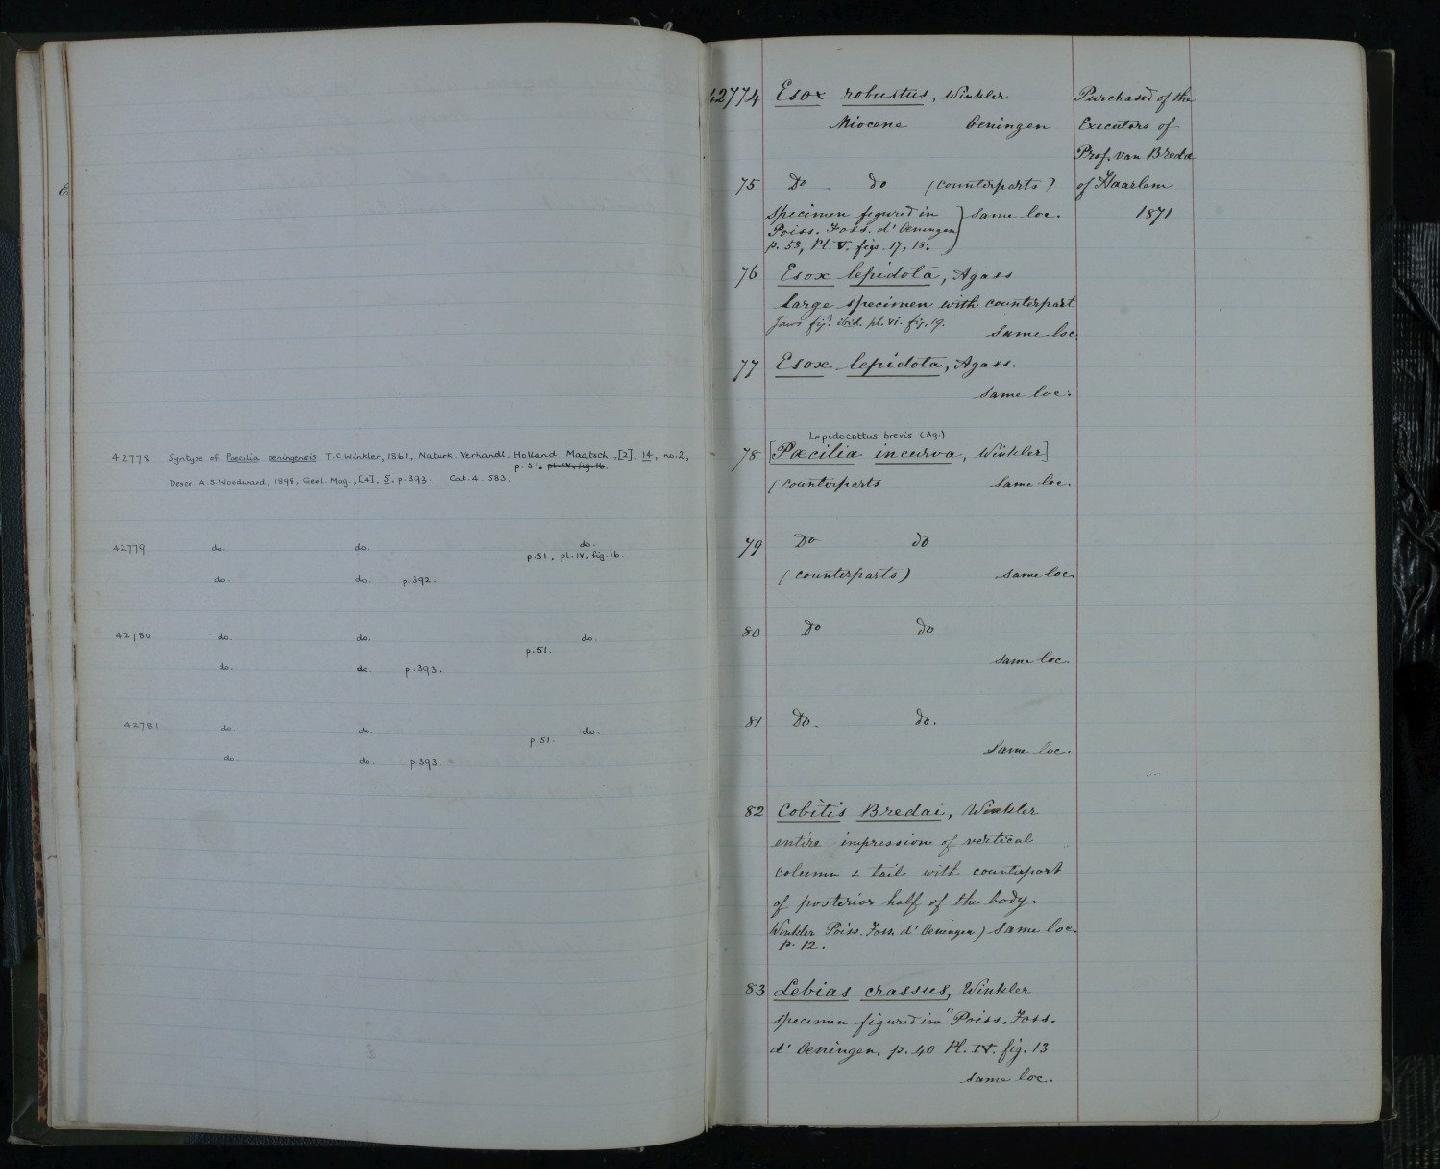 42778 Syntype of Poecilia oeningensis T.C. Winkler, 1861, Naturk. Verhandl. Holland Maatsch., [2]. 14, no. 2,
p. 51. pl. IV, fig. 16.
Descr. A.S. Woodward, 1898, Geol. Mag., [4], 5, p. 393. Cat. 4. 583.
42779 do. do. do.
p. 51. pl. IV, fig. 16.
do. do. p. 392.
42780 do. do. do.
p. 51.
do. do. p. 393.
42781 do. do. do.
p 51.
do. do. p 393.
42774 Esox robustus, Winkler. Purchased of the
Miocene Oeningen Executors of
Prof. van Breda
75 Do do (Counterparts) of Haarlem
Specimen figured in } same loc. 1871
Poiss. Foss. d' Oeningen
p. 53, Pl. V. figs. 17, 18.
76 Esox lepidota, Agass
Large specimen with counterpart
Jaws figd. ibid. pl. vi. fig. 19.
same loc.
77 Esox lepidota, Agass.
same loc.
Lepidocottus brevis (Ag.)
78 [Pœcilia incurva, Winkler]
(Counterparts same loc.
79 Do do
(Counterparts) same loc.
80 Do do
same loc.
81 Do. do.
same loc.
82 Cobitis Bredai, Winkler
entire impression of vertical
column & tail with counterpart
of posterior half of the body.
Winkler Poiss. Foss. d' Oeningen) same loc.
p. 12.
83 Lebias crassus, Winkler
specimen figured in "Poiss. Foss.
d' Oeningen. p. 40 Pl. IV. fig. 13
same loc.